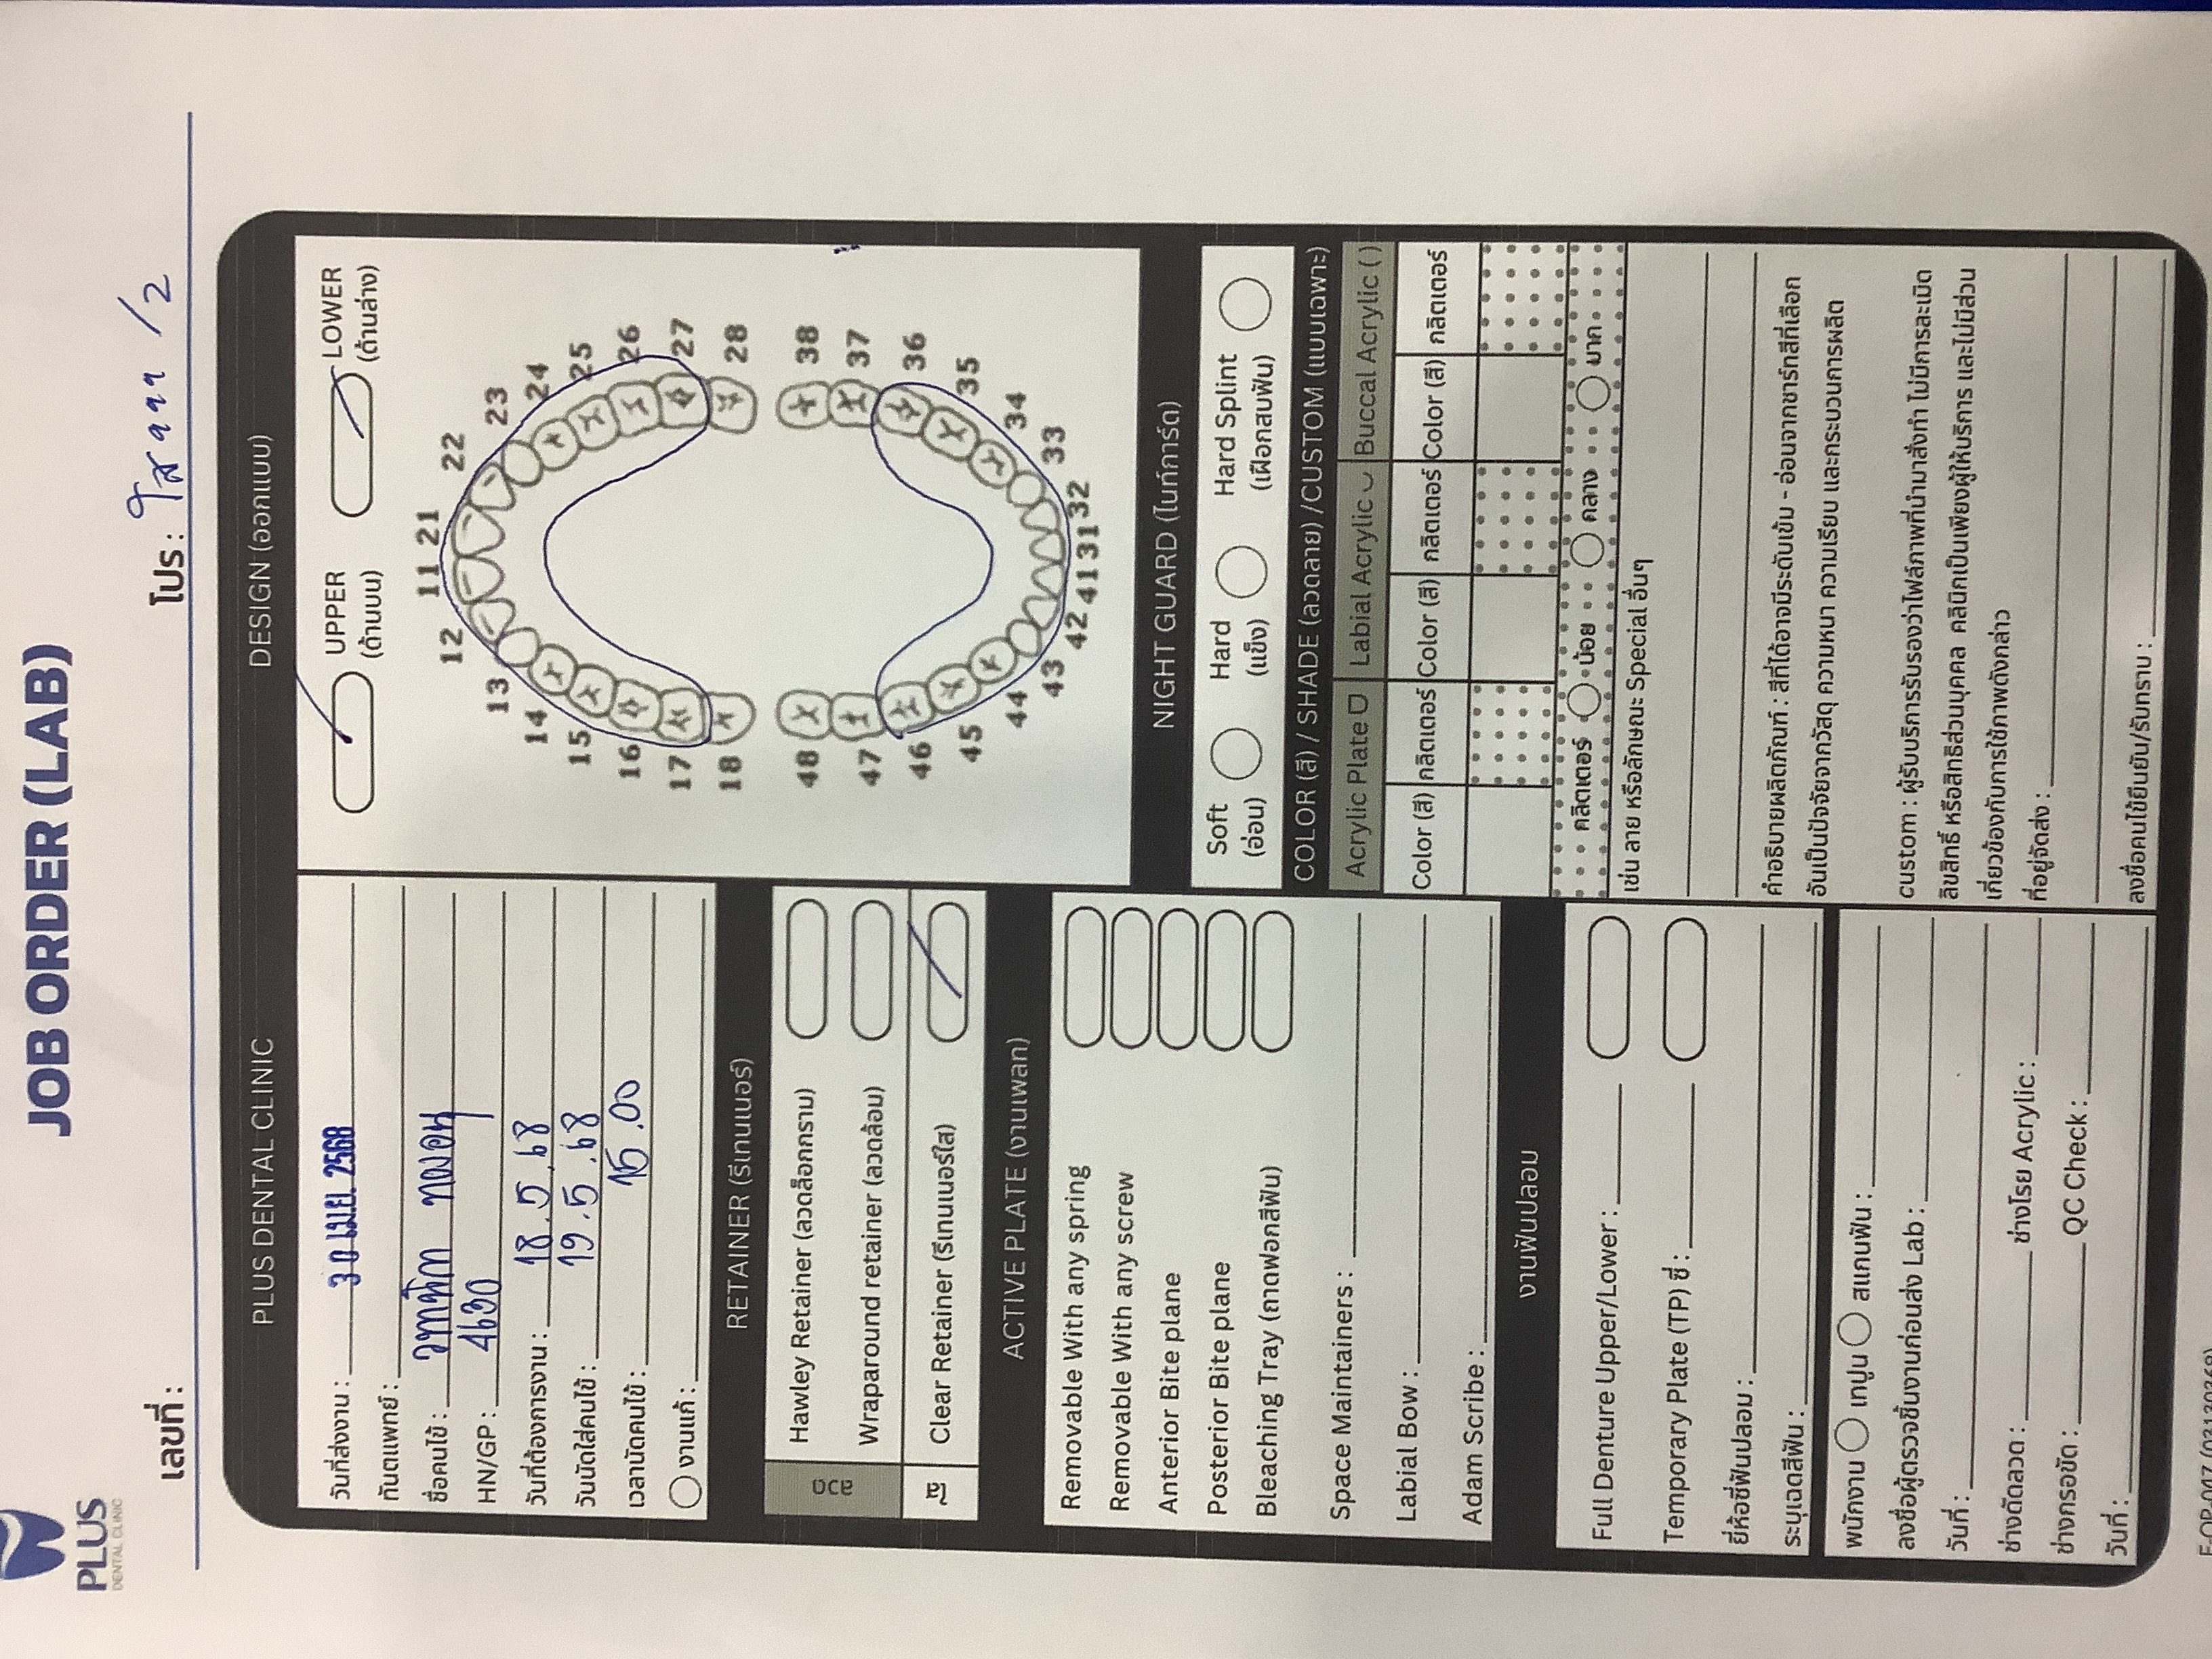 JOB ORDER (LAB)
PLUS
DENTAL CLINIC
เลขที่ :
โปร : ใส 999 /2
PLUS DENTAL CLINIC
วันที่ส่งงาน : 30 เม.ย. 2568
ทันตแพทย์ :
ชื่อคนไข้ :
HN/GP : 4630
วันที่ต้องการงาน : 18.5.68
วันนัดใส่คนไข้ : 19.5.68
เวลานัดคนไข้ : 15.00
งานแก้ :
RETAINER (รีเทนเนอร์)
ลวด
Hawley Retainer (ลวดล็อกกราม)
Wraparound retainer (ลวดล้อม)
ใส
Clear Retainer (รีเทนเนอร์ใส)
ACTIVE PLATE (งานเพลท)
Removable With any spring
Removable With any screw
Anterior Bite plane
Posterior Bite plane
Bleaching Tray (ถาดฟอกสีฟัน)
Space Maintainers :
Labial Bow :
Adam Scribe :
งานฟันปลอม
Full Denture Upper/Lower :
Temporary Plate (TP) ซี่ :
ยี่ห้อซี่ฟันปลอม :
ระบุเฉดสีฟัน :
พนักงาน เทปูน สแกนฟัน :
ลงชื่อผู้ตรวจชิ้นงานก่อนส่ง Lab :
วันที่ :
ช่างดัดลวด : ช่างโรย Acrylic :
ช่างกรอขัด : QC Check :
วันที่ :
DESIGN (ออกแบบ)
UPPER LOWER
(ด้านบน) (ด้านล่าง)
11 21
12 22
13 23
14 24
15 25
16 26
17 27
18 28
48 38
47 37
46 36
45 35
44 34
43 33
42 41 31 32
NIGHT GUARD (ไนท์การ์ด)
Soft Hard Hard Splint
(อ่อน) (แข็ง) (เฝือกสบฟัน)
COLOR (สี) / SHADE (ลวดลาย) /CUSTOM (แบบเฉพาะ)
Acrylic Plate Labial Acrylic Buccal Acrylic ( )
Color (สี) กลิตเตอร์ Color (สี) กลิตเตอร์ Color (สี) กลิตเตอร์
คลิตเตอร์ น้อย คลาง มาก
เช่น ลาย หรือลักษณะ Special อื่นๆ
คำอธิบายผลิตภัณฑ์ : สีที่ได้อาจมีระดับเข้ม - อ่อนจากชาร์ทสีที่เลือก
อันเป็นปัจจัยจากวัสดุ ความหนา ความเรียบ และกระบวนการผลิต
custom : ผู้รับบริการรับรองว่าไฟล์ภาพที่นำมาสั่งทำ ไม่มีการละเมิด
ลิขสิทธิ์ หรือสิทธิส่วนบุคคล คลินิกเป็นเพียงผู้ให้บริการ และไม่มีส่วน
เกี่ยวข้องกับการใช้ภาพดังกล่าว
ที่อยู่จัดส่ง :
ลงชื่อคนไข้ยืนยัน/รับทราบ :